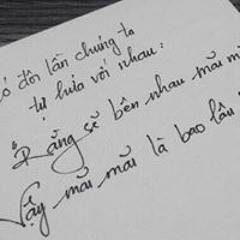 Có đôi lần chúng ta
tự hứa với nhau:
"Rằng sẽ bên nhau mãi
Vậy mãi mãi là bao lâu